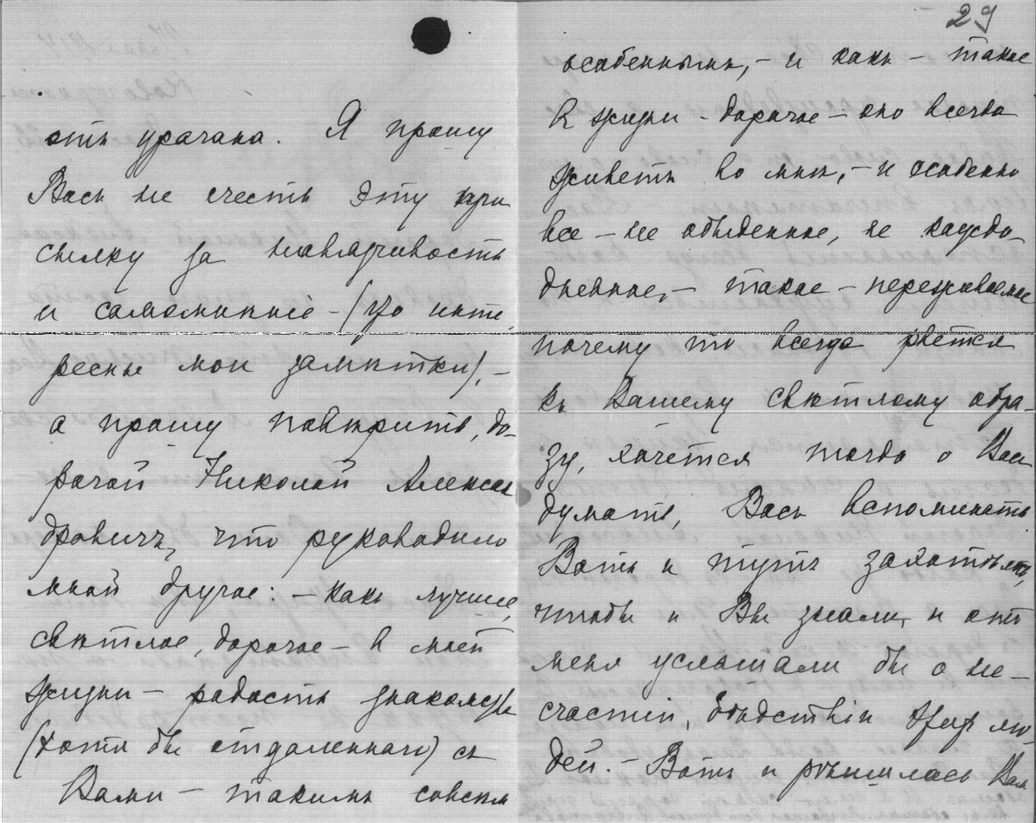 отъ урагана. Я прошу
Васъ не счесть эту при
сылку за навязчивость
и самомнѣніе – (что инте
ресны мои замѣтки), –
а прошу повѣрить, до-
рогой Николай Алексан
дровичъ, что руководило
мной другое: – какъ лучшее,
свѣтлое, дорогое – в моей
жизни – радость знакомства
(хотя бы отдаленнаго) съ
Вами – такимъ совсѣмъ
29
особеннымъ, – и какъ – такое
в жизни – дорогое – оно всегда
живетъ во мнѣ, – и особенно
все – не обыденное, не каждо-
дневное, – такое – переживаемое
почему то всегда рвется
къ Вашему свѣтлому обра-
зу, хочется тогда о Вас
думать, Васъ вспоминать
Вотъ и тутъ захотѣлось,
чтобы и Вы знали, и отъ
меня услышали бы о не-
счастіи, бѣдствіи этих лю
дей. – Вотъ и рѣшилась Вам